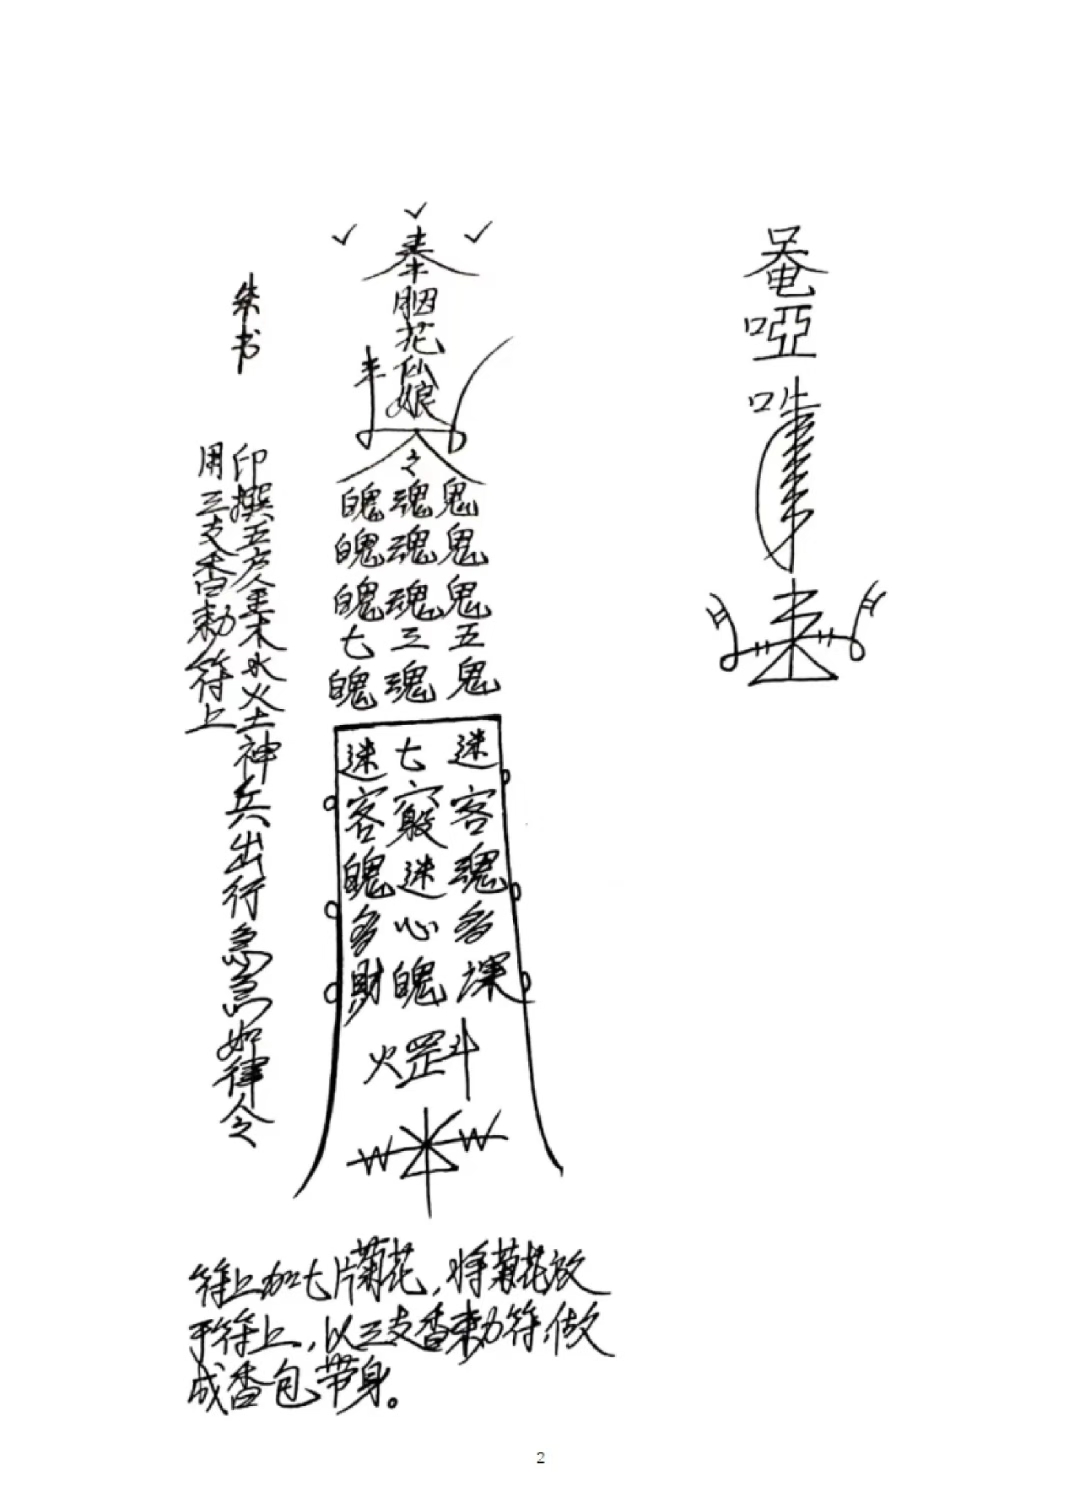 朱书
用三支香勅符上
印撰五方金木水火土神兵出行急急如律令
奉
胭花仙娘
魄魂鬼
魄魂鬼
魄魂鬼
七三五
魄魂鬼
迷七迷
客竅客
魄迷魂
多心多
財魄
火罡斗
唵
啞
符上加七片菊花,将菊花放
于符上,以三支香勅符,做
成香包带身。
2